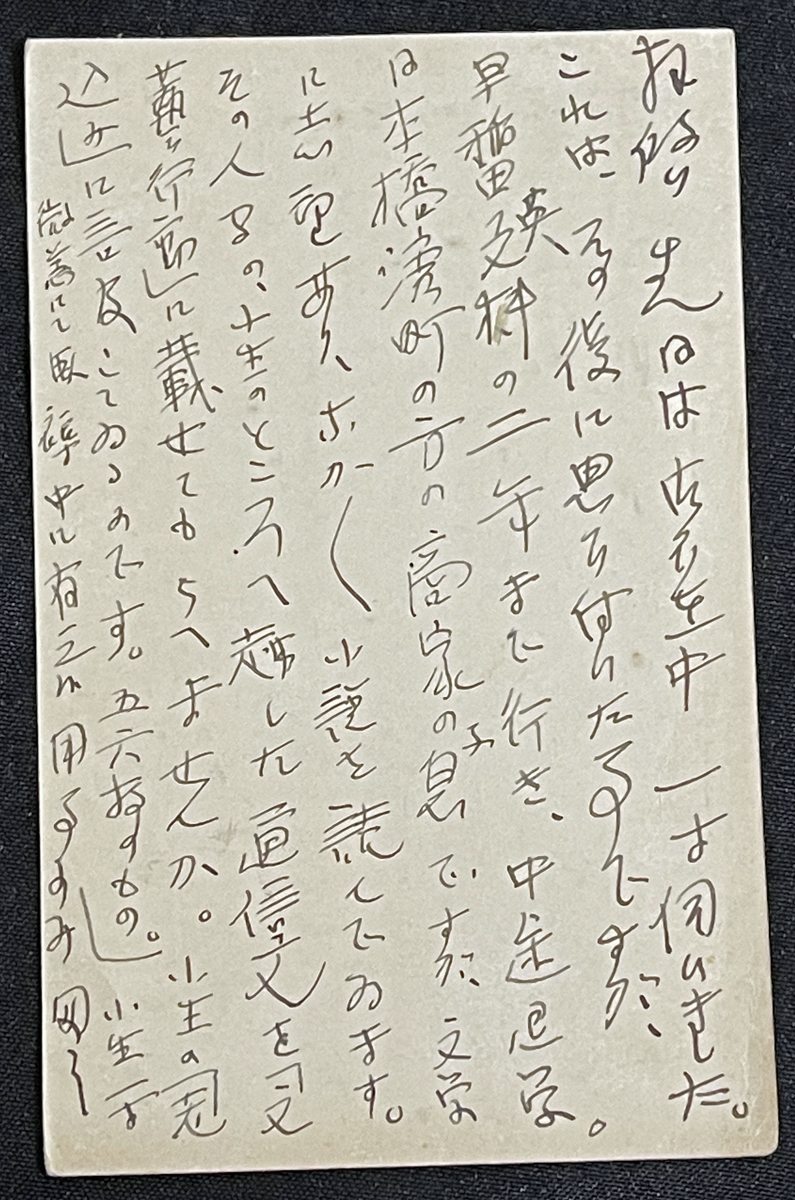 拝啓 先日は御不在中 一寸伺いました。
これは、その後に思ひ付いた事ですが、
早稲田英文科の二年まで行き、中途退学。
日本橋濱町の方の商家の息子ですが、文学
に志望あり、なか〱小説を読んでゐます。
その人の、小生のところへ越した通信文を「文
藝行動」に載せてもらへませんか。小生の「冠
込み」に言及してゐるのです。五六枚のもの。小生一寸
微恙にて臥褥中に有之